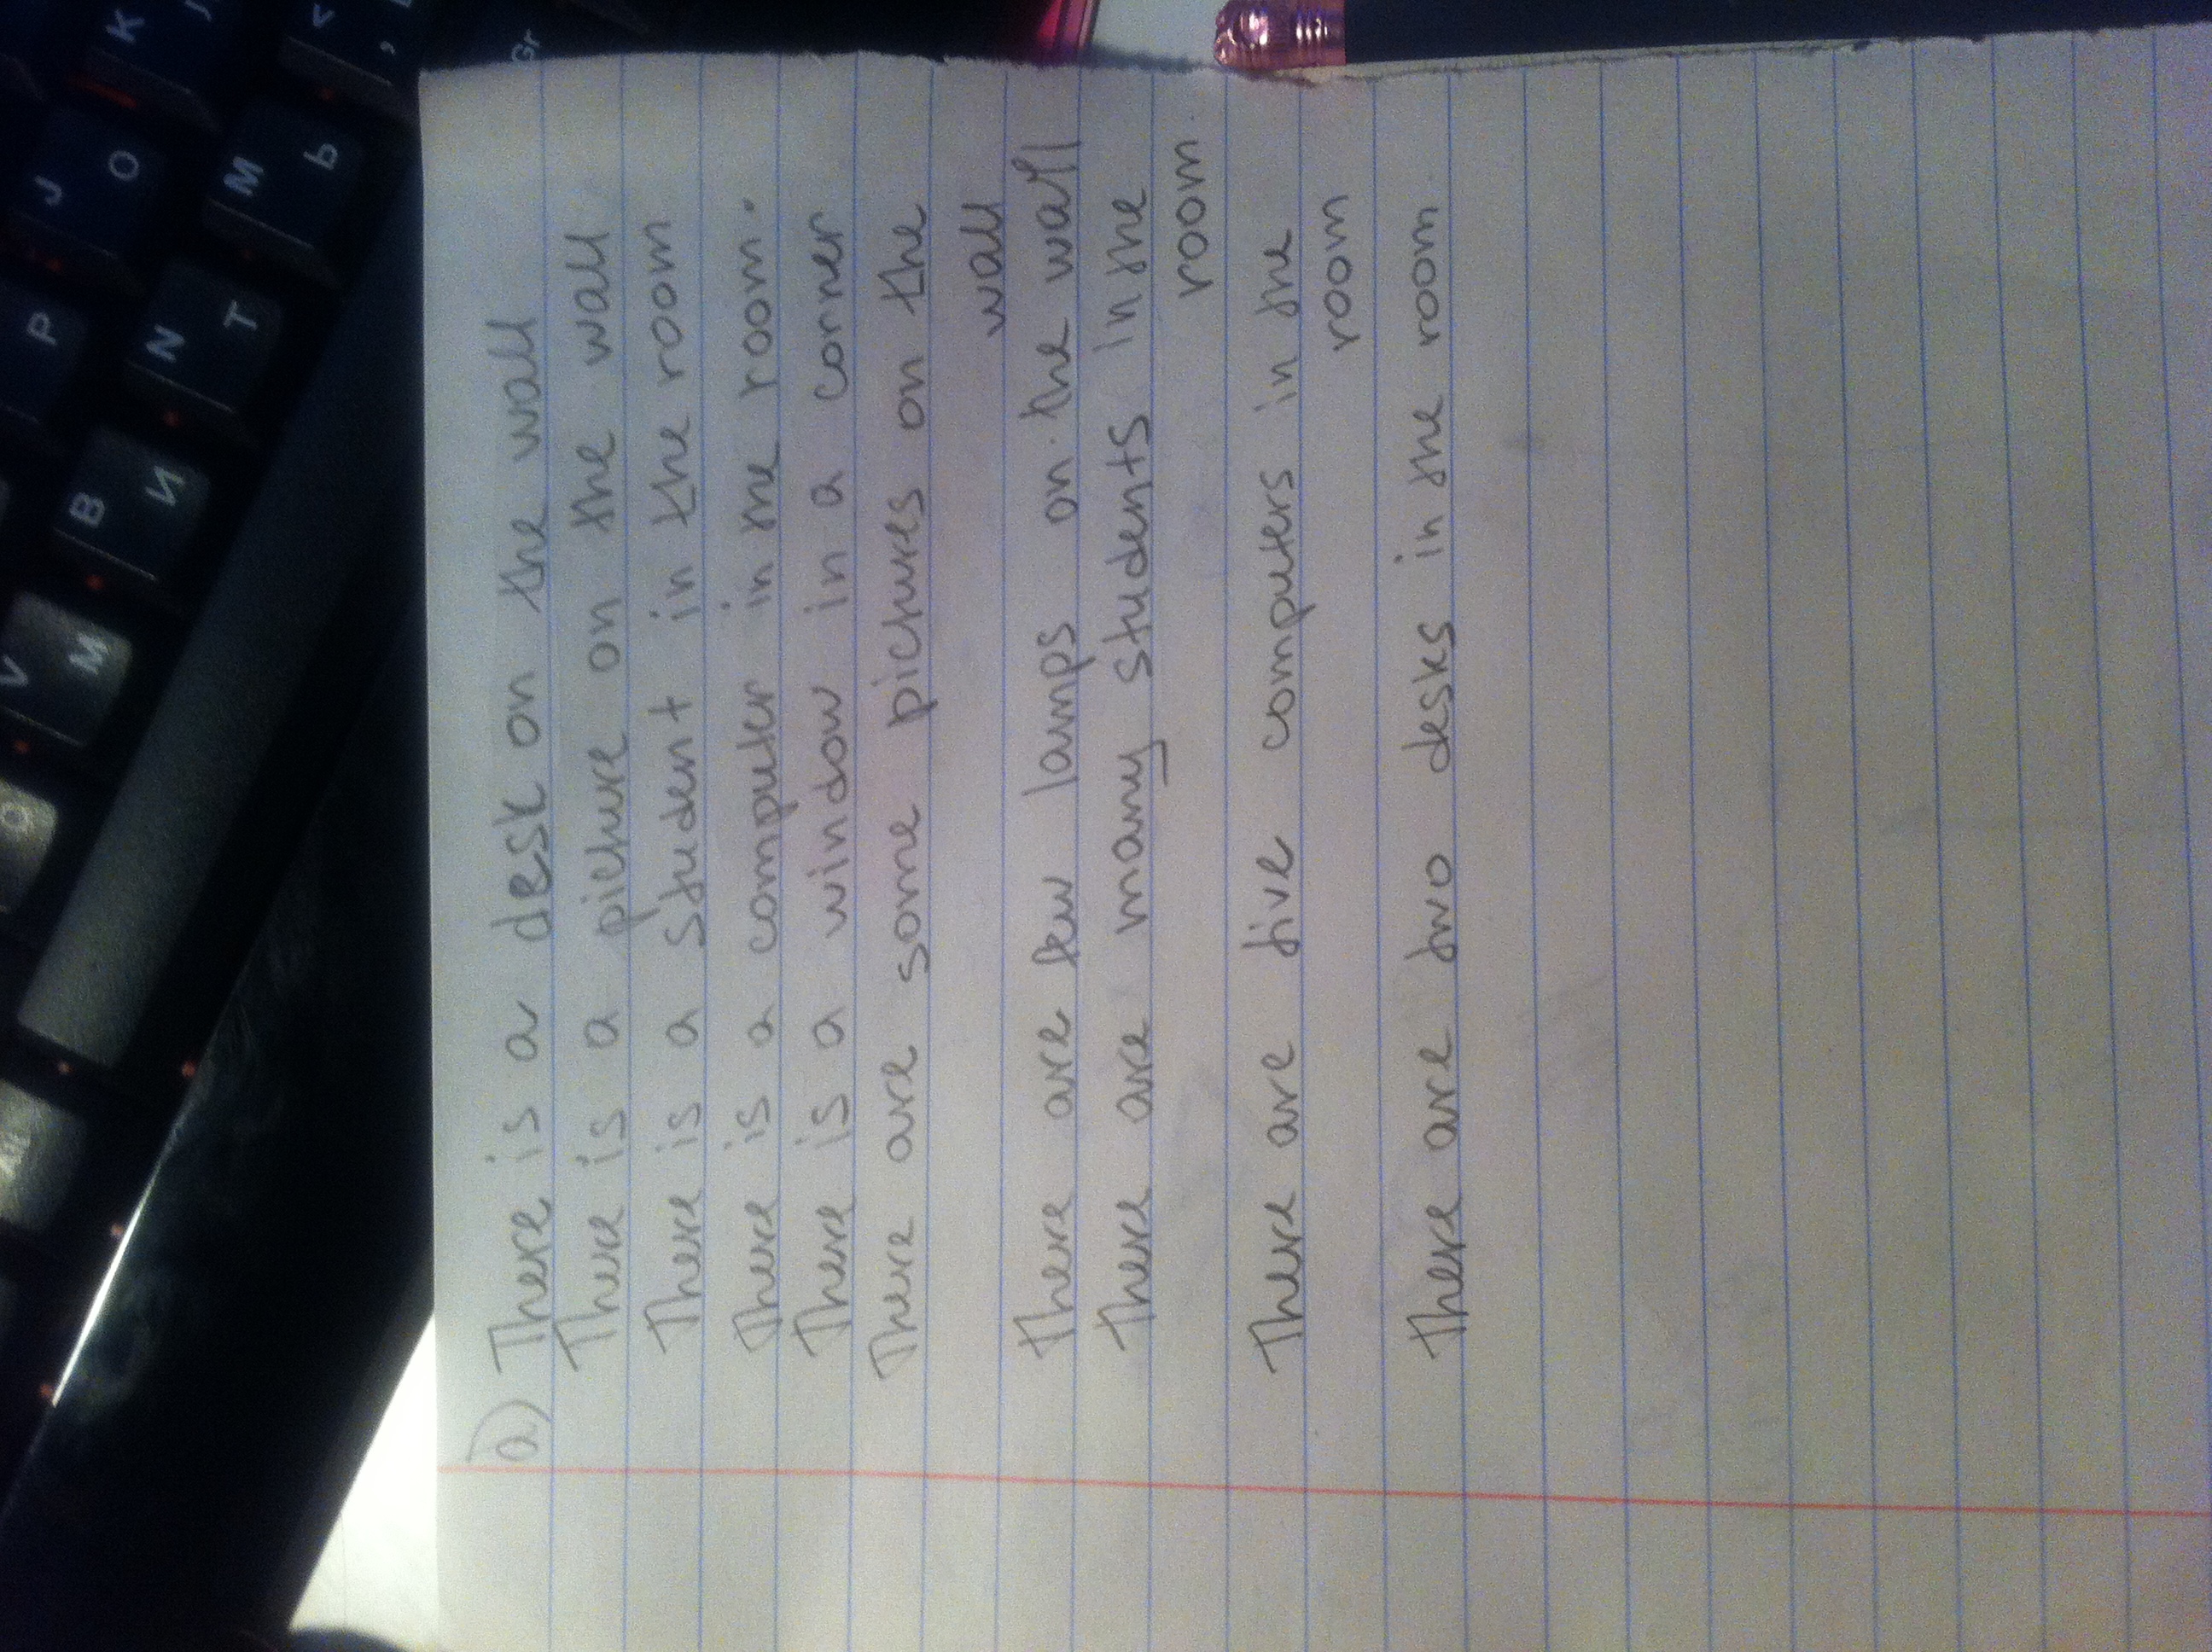 a) There is a desk on the wall
There is a picture on the wall
There is a student in the room
There is a computer in the room.
There is a window in a corner
There are some pictures on the
wall
There are few lamps on the wall
There are many students in the
room.
There are five computers in the
room
There are two desks in the room.
K
J
О
M
Ь
<
,
Gr
P
N
Т
B
И
V
М